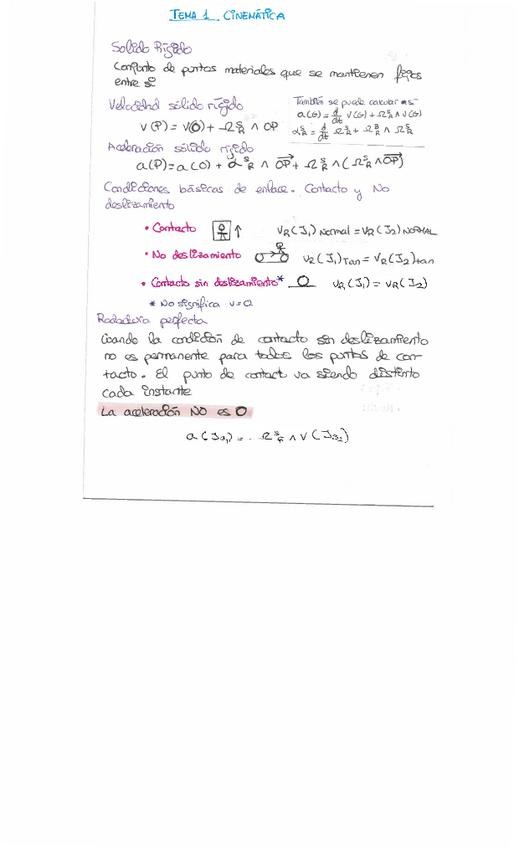 TEMA 1. CINEMÁTICA
Solido Rígido
Conjunto de puntos materiales que se mantienen fijos
entre sí
Velocidad sólido rígido
V(P) = V(O) + Ω^S_R ∧ OP
También se puede calcular así
a(G) = d/dt V(G) + Ω^S_R ∧ V(G)
α^S_R = d/dt Ω^S_R + Ω^B_R ∧ Ω^S_R
Aceleración sólido rígido
a(P) = a(O) + α^S_R ∧ OP + Ω^S_R ∧ (Ω^S_R ∧ OP)
Condiciones básicas de enlace. Contacto y No
deslizamiento
• Contacto ↑ VR(J1) Normal = VR(J2) NORMAL
• No deslizamiento VR(J1)Tan = VR(J2)tan
• Contacto sin deslizamiento* VR(J1) = VR(J2)
* No significa v=0
Rodadura perfecta
Cuando la condición de contacto sin deslizamiento
no es permanente para todos los puntos de con-
tacto. El punto de contact va siendo distinto
cada instante
La aceleración NO es 0